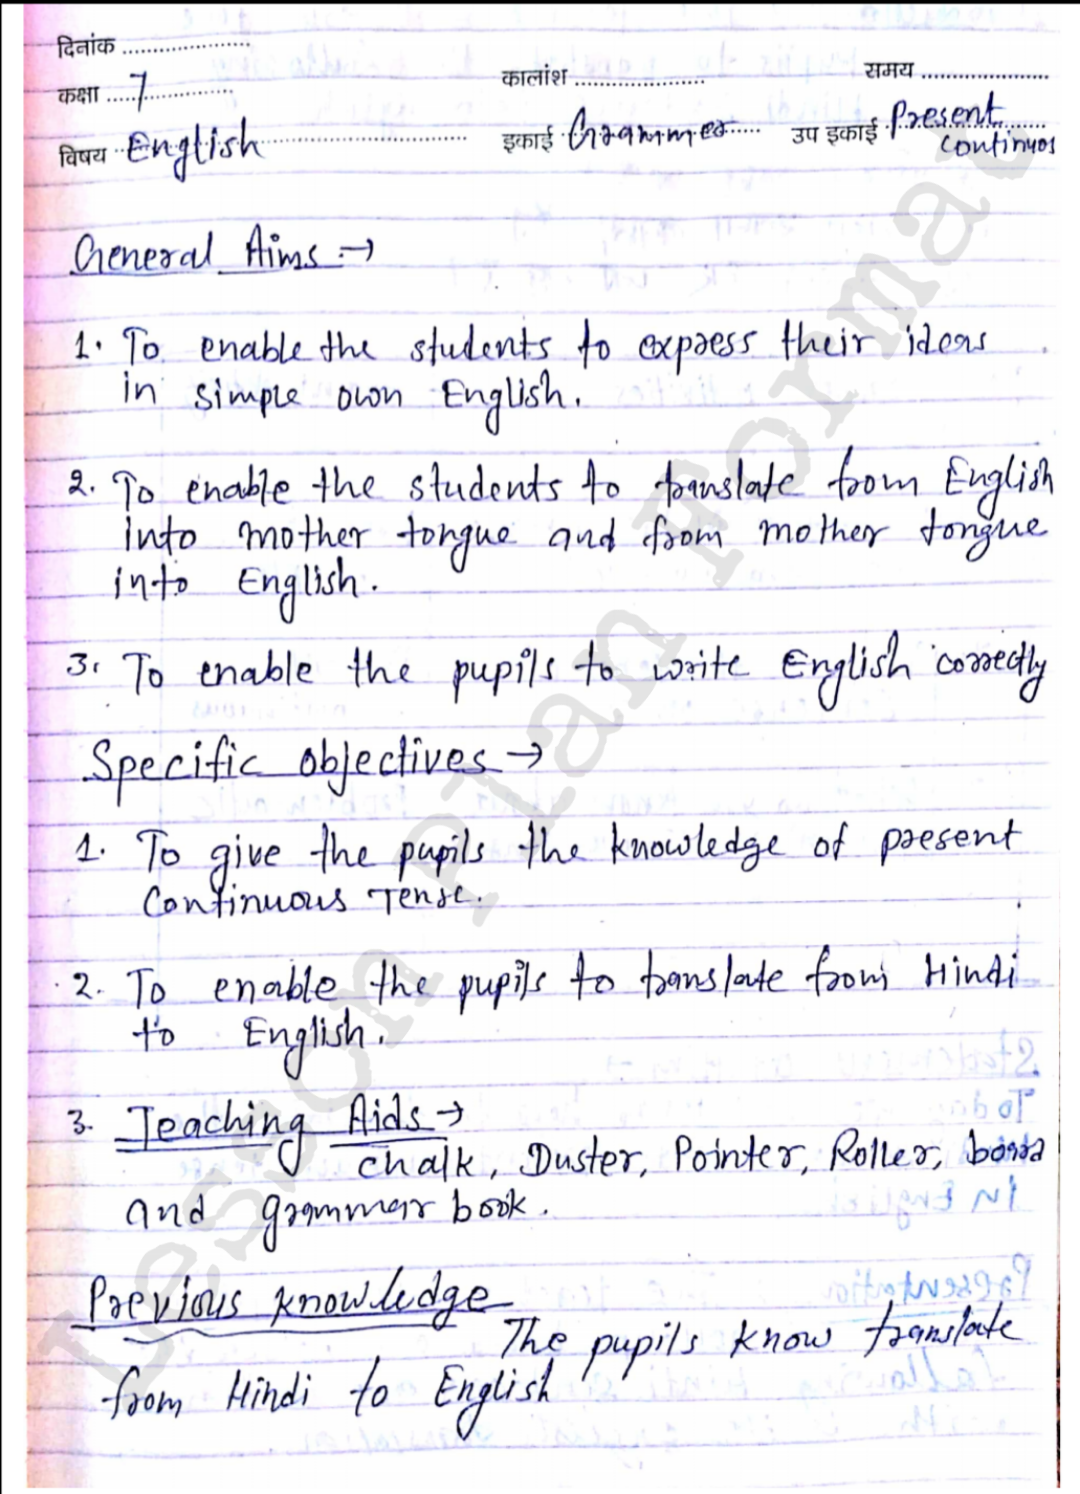 दिनांक ....................
कक्षा ....7.............. कालांश ...................... समय .....................
विषय ..English.............................. इकाई Grammer...... उप इकाई Present
continuos
General Aims :→
1. To enable the students to express their ideas
in simple own English.
2. To enable the students to translate from English
into mother tongue and from mother tongue
into English.
3. To enable the pupils to write English correctly
Specific objectives →
1. To give the pupils the knowledge of present
Continuous Tense.
2. To enable the pupils to translate from Hindi
to English.
3. Teaching Aids →
chalk, Duster, Pointer, Roller, board
and grammar book.
Previous knowledge
The pupils know translate
from Hindi to English
Lesson Plan Format